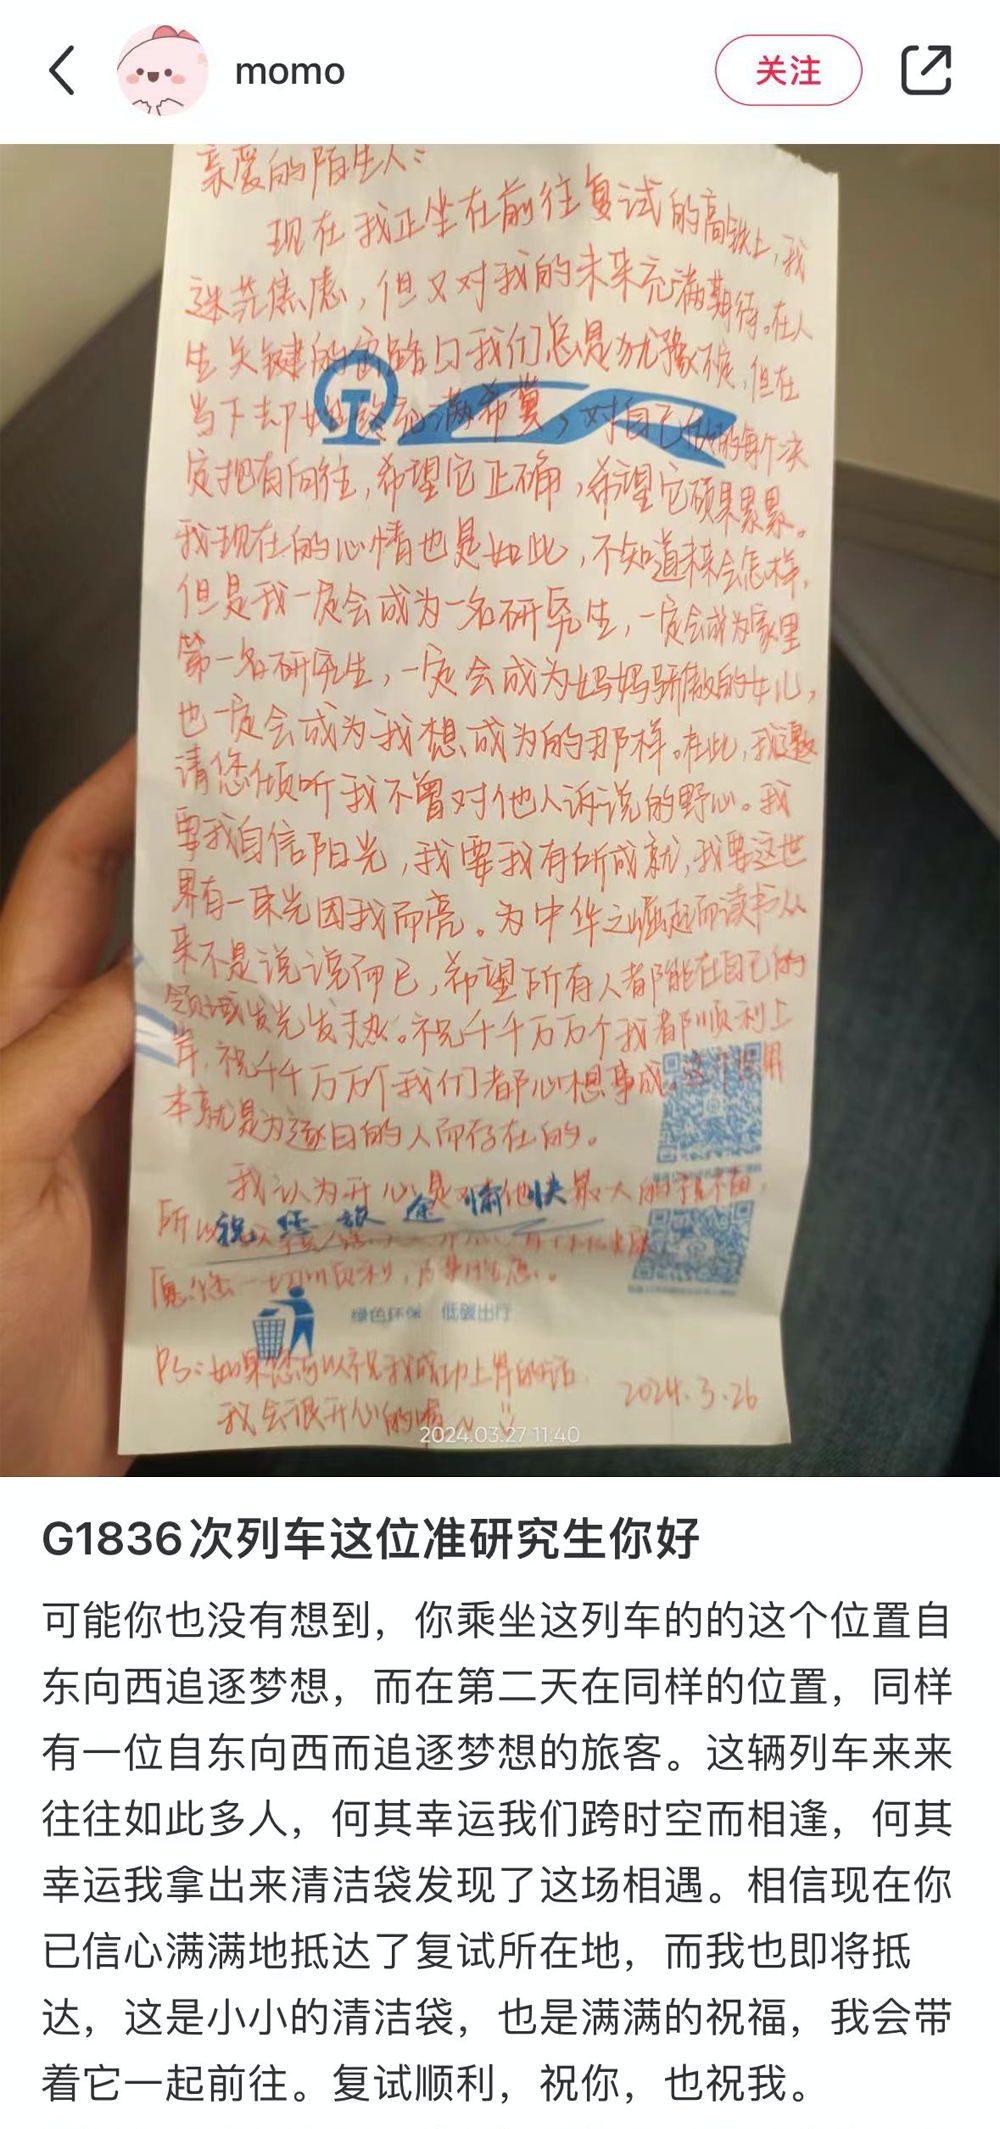 momo
关注
亲爱的陌生人：
现在我正坐在前往复试的高铁上，我
迷茫焦虑，但又对我的未来充满期待。在人
生关键的岔路口我们总是犹豫不定，但在
当下却始终充满希冀，对自己做的每个决
定抱有向往，希望它正确，希望它硕果累累。
我现在的心情也是如此，不知道未来会怎样，
但是我一定会成为一名研究生，一定会成为家里
第一名研究生，一定会成为妈妈骄傲的女儿，
也一定会成为我想成为的那样。在此，我邀
请您倾听我不曾对他人诉说的野心。我
要我自信阳光，我要我有所成就，我要这世
界有一束光因我而亮。为中华之崛起而读书从
来不是说说而已，希望所有人都能在自己的
领域发光发热。祝千千万万个我都顺利上
岸，祝千千万万个我们都心想事成。这个世界
本就是为逐日的人而存在的。
我认为开心是对其他人最大的祝福，
所以
祝您旅途愉快
愿您一切顺利，万事胜意。
绿色环保 低碳出行
PS：如果您可以祝我成功上岸的话
我会很开心的喔~
2024.3.26
2024.03.27 11:40
G1836次列车这位准研究生你好
可能你也没有想到，你乘坐这列车的的这个位置自
东向西追逐梦想，而在第二天在同样的位置，同样
有一位自东向西而追逐梦想的旅客。这辆列车来来
往往如此多人，何其幸运我们跨时空而相逢，何其
幸运我拿出来清洁袋发现了这场相遇。相信现在你
已信心满满地抵达了复试所在地，而我也即将抵
达，这是小小的清洁袋，也是满满的祝福，我会带
着它一起前往。复试顺利，祝你，也祝我。